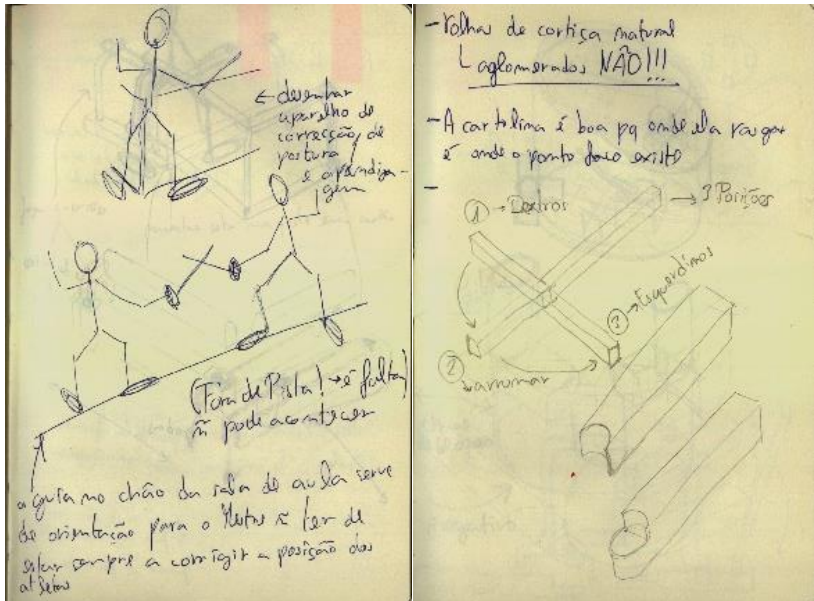 ← desenhar
aparelho de
correcção de
postura
e aprendiza-
gem
(Fora de Pista! → é falta)
ñ pode acontecer
a guia no chão da sala de aula serve
de orientação para o Mestre ñ ter de
estar sempre a corrigir a posição dos
atletas
- Rolhas de cortiça natural
aglomerados NÃO!!!
- A cartolina é boa pq onde ela rasgar
é onde o ponto fraco existe
-
① → Dextros
→ 3 Posições
③ → Esquerdinos
② → arrumar